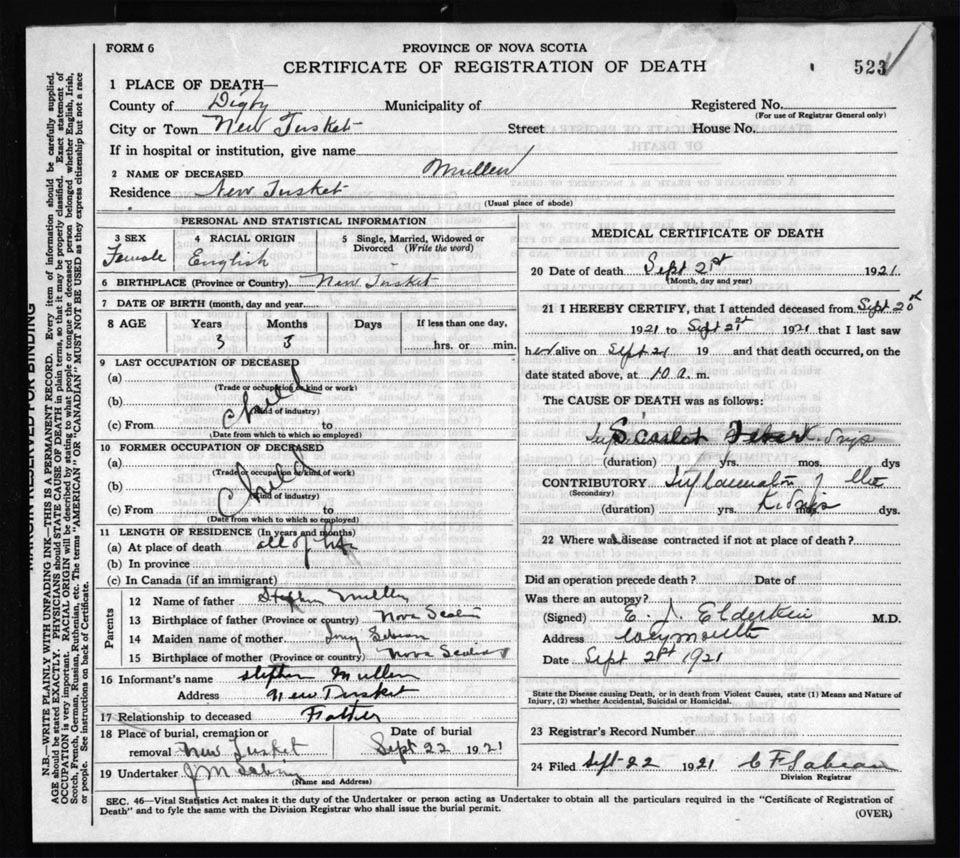 FORM 6
PROVINCE OF NOVA SCOTIA
CERTIFICATE OF REGISTRATION OF DEATH
523
1 PLACE OF DEATH—
County of Digby Municipality of Registered No.
(For use of Registrar General only)
City or Town New Tusket Street House No.
If in hospital or institution, give name
2 NAME OF DECEASED Mullen
Residence New Tusket
(Usual place of abode)
PERSONAL AND STATISTICAL INFORMATION
3 SEX 4 RACIAL ORIGIN 5 Single, Married, Widowed or Divorced (Write the word)
Female English
6 BIRTHPLACE (Province or Country) New Tusket
7 DATE OF BIRTH (month, day and year)
8 AGE Years Months Days If less than one day,
3 3 hrs. or min.
9 LAST OCCUPATION OF DECEASED
(a)
(Trade or occupation or kind or work)
(b) Child
(Kind of industry)
(c) From to
(Date from which to which so employed)
10 FORMER OCCUPATION OF DECEASED
(a)
(Trade or occupation or kind of work)
(b) Child
(Kind of industry)
(c) From to
(Date from which to which so employed)
11 LENGTH OF RESIDENCE (In years and months)
(a) At place of death all of life
(b) In province
(c) In Canada (if an immigrant)
Parents
12 Name of father Stephen Mullen
13 Birthplace of father (Province or country) Nova Scotia
14 Maiden name of mother Sabean
15 Birthplace of mother (Province or country) Nova Scotia
16 Informant's name Stephen Mullen
Address New Tusket
17 Relationship to deceased Father
18 Place of burial, cremation or Date of burial
removal New Tusket Sept 22 1921
19 Undertaker J M Sabin
(Name and Address)
MEDICAL CERTIFICATE OF DEATH
20 Date of death Sept 21st 1921
(Month, day and year)
21 I HEREBY CERTIFY, that I attended deceased from Sept 20th
1921 to Sept 21st 1921 that I last saw
her alive on Sept 21 19 and that death occurred, on the
date stated above, at 10 a. m.
The CAUSE OF DEATH was as follows:
Scarlet Fever
(duration) yrs. mos. dys
CONTRIBUTORY Inflamation of the
(Secondary)
(duration) yrs. Kidneys dys.
22 Where was disease contracted if not at place of death?
Did an operation precede death? Date of
Was there an autopsy?
(Signed) E. J. Elderkin M.D.
Address Weymouth
Date Sept 21st 1921
State the Disease causing Death, or in death from Violent Causes, state (1) Means and Nature of
Injury, (2) whether Accidental, Suicidal or Homicidal.
23 Registrar's Record Number
24 Filed Sept 22 1921 C F Sabean
Division Registrar
SEC. 46—Vital Statistics Act makes it the duty of the Undertaker or person acting as Undertaker to obtain all the particulars required in the "Certificate of Registration of
Death" and to fyle the same with the Division Registrar who shall issue the burial permit.
(OVER)
MARGIN RESERVED FOR BINDING
N.B.—WRITE PLAINLY WITH UNFADING INK—THIS IS A PERMANENT RECORD. Every item of information should be carefully supplied.
AGE should be stated EXACTLY. PHYSICIANS should STATE CAUSE OF DEATH in plain terms, so that it may be properly classified. Exact statement of
OCCUPATION is very important. RACIAL ORIGIN will be described by stating to what people or tongue the deceased person belonged whether English, Irish,
Scotch, French, German, Russian, Ruthenian, etc. The terms "AMERICAN" OR "CANADIAN" MUST NOT BE USED as they express citizenship but not a race
or people. See instructions on back of Certificate.